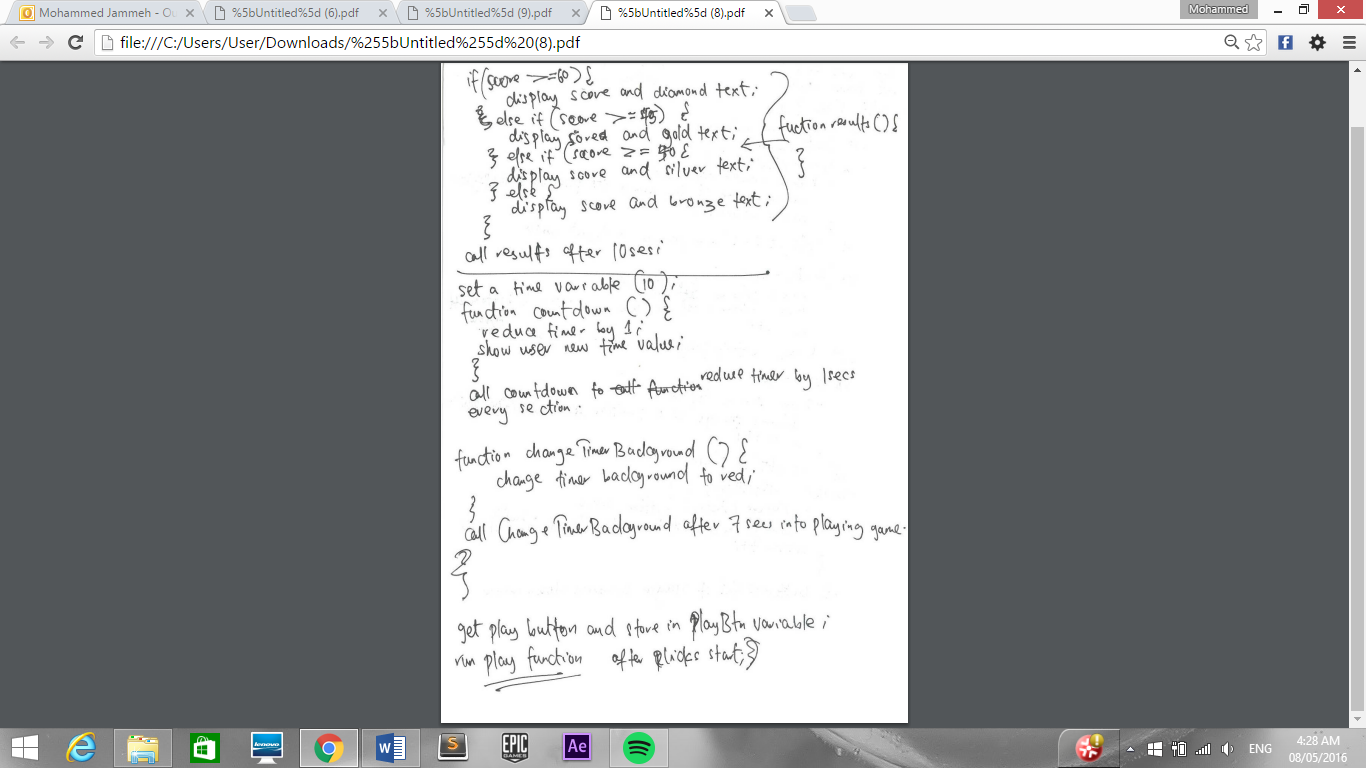 Mohammed Jammeh - Ou
%5bUntitled%5d (6).pdf
%5bUntitled%5d (9).pdf
%5bUntitled%5d (8).pdf
Mohammed
file:///C:/Users/User/Downloads/%255bUntitled%255d%20(8).pdf
if(score >=60) {
display score and diamond text;
} else if (score >= ) {
display score and gold text;
fuction results() {
} else if (score >= {
display score and silver text;
}
} else {
display score and bronze text;
}
call results after 10secs;
set a time variable (10);
function countdown () {
reduce timer by 1;
show user new time value;
}
call countdown to call function reduce timer by 1secs
every section.
function changeTimerBackground () {
change timer background to red;
}
call ChangeTimerBackground after 7 secs into playing game.
}
}
get play button and store in PlayBtn variable;
run play function after clicks start;}
lenovo
S
EPIC
GAMES
Ae
ENG
4:28 AM
08/05/2016